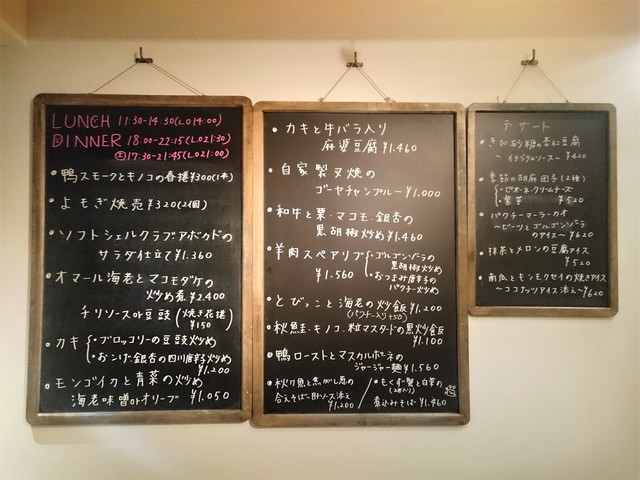 LUNCH 11:30-14:30(L.O14:00)
DINNER 18:00-22:15(L.O21:30)
㊏17:30-21:45(L.O21:00)
・鴨スモークとキノコの春捲¥300(1本)
・よもぎ焼売¥320(2個)
・ソフトシェルクラブアボカドの
サラダ仕立て¥1.360
・オマール海老とマコモダケの
炒め煮¥2.400
チリソースor豆豉(焼き花捲¥150)
・カキ{・ブロッコリーの豆豉炒め
・おこげ、銀杏の四川唐辛子炒め
¥1.200
・モンゴイカと青菜の炒め
海老味噌orオリーブ ¥1.050
・カキと牛バラ入り
麻婆豆腐¥1.460
・自家製叉焼の
ゴーヤチャンプルー¥1.000
・和牛と栗・マコモ・銀杏の
黒胡椒炒め¥1.460
・羊肉スペアリブ{・ゴルゴンゾーラの
黒胡椒炒め
¥1.560 ・おつまみ唐辛子の
パクチー炒め
・とびっこと海老の炒飯¥1.200
(パクチー入り+50)
・秋鮭・キノコ・粒マスタードの黒炒飯
¥1.100
・鴨ローストとマスカルポーネの
ジャージャー麺¥1.560
・秋刀魚と焦がし葱の
合えそば〜肝ソース添え
¥1.200
・もくず蟹と白菜の
煮込みそば¥1.460
デザート
・きび砂糖の杏仁豆腐
〜イチジクソース〜 ¥420
・季節の胡麻団子(2種)
{・ピオーネ・クリームチーズ
・紫芋 ¥520
・パクチーマーラーカオ
〜ビーツとゴルゴンゾーラ
のアイス〜¥620
・抹茶とメロンの豆腐アイス
¥520
・南瓜とモンモクセイの焼きアイス
〜ココナッツアイス添え〜¥620